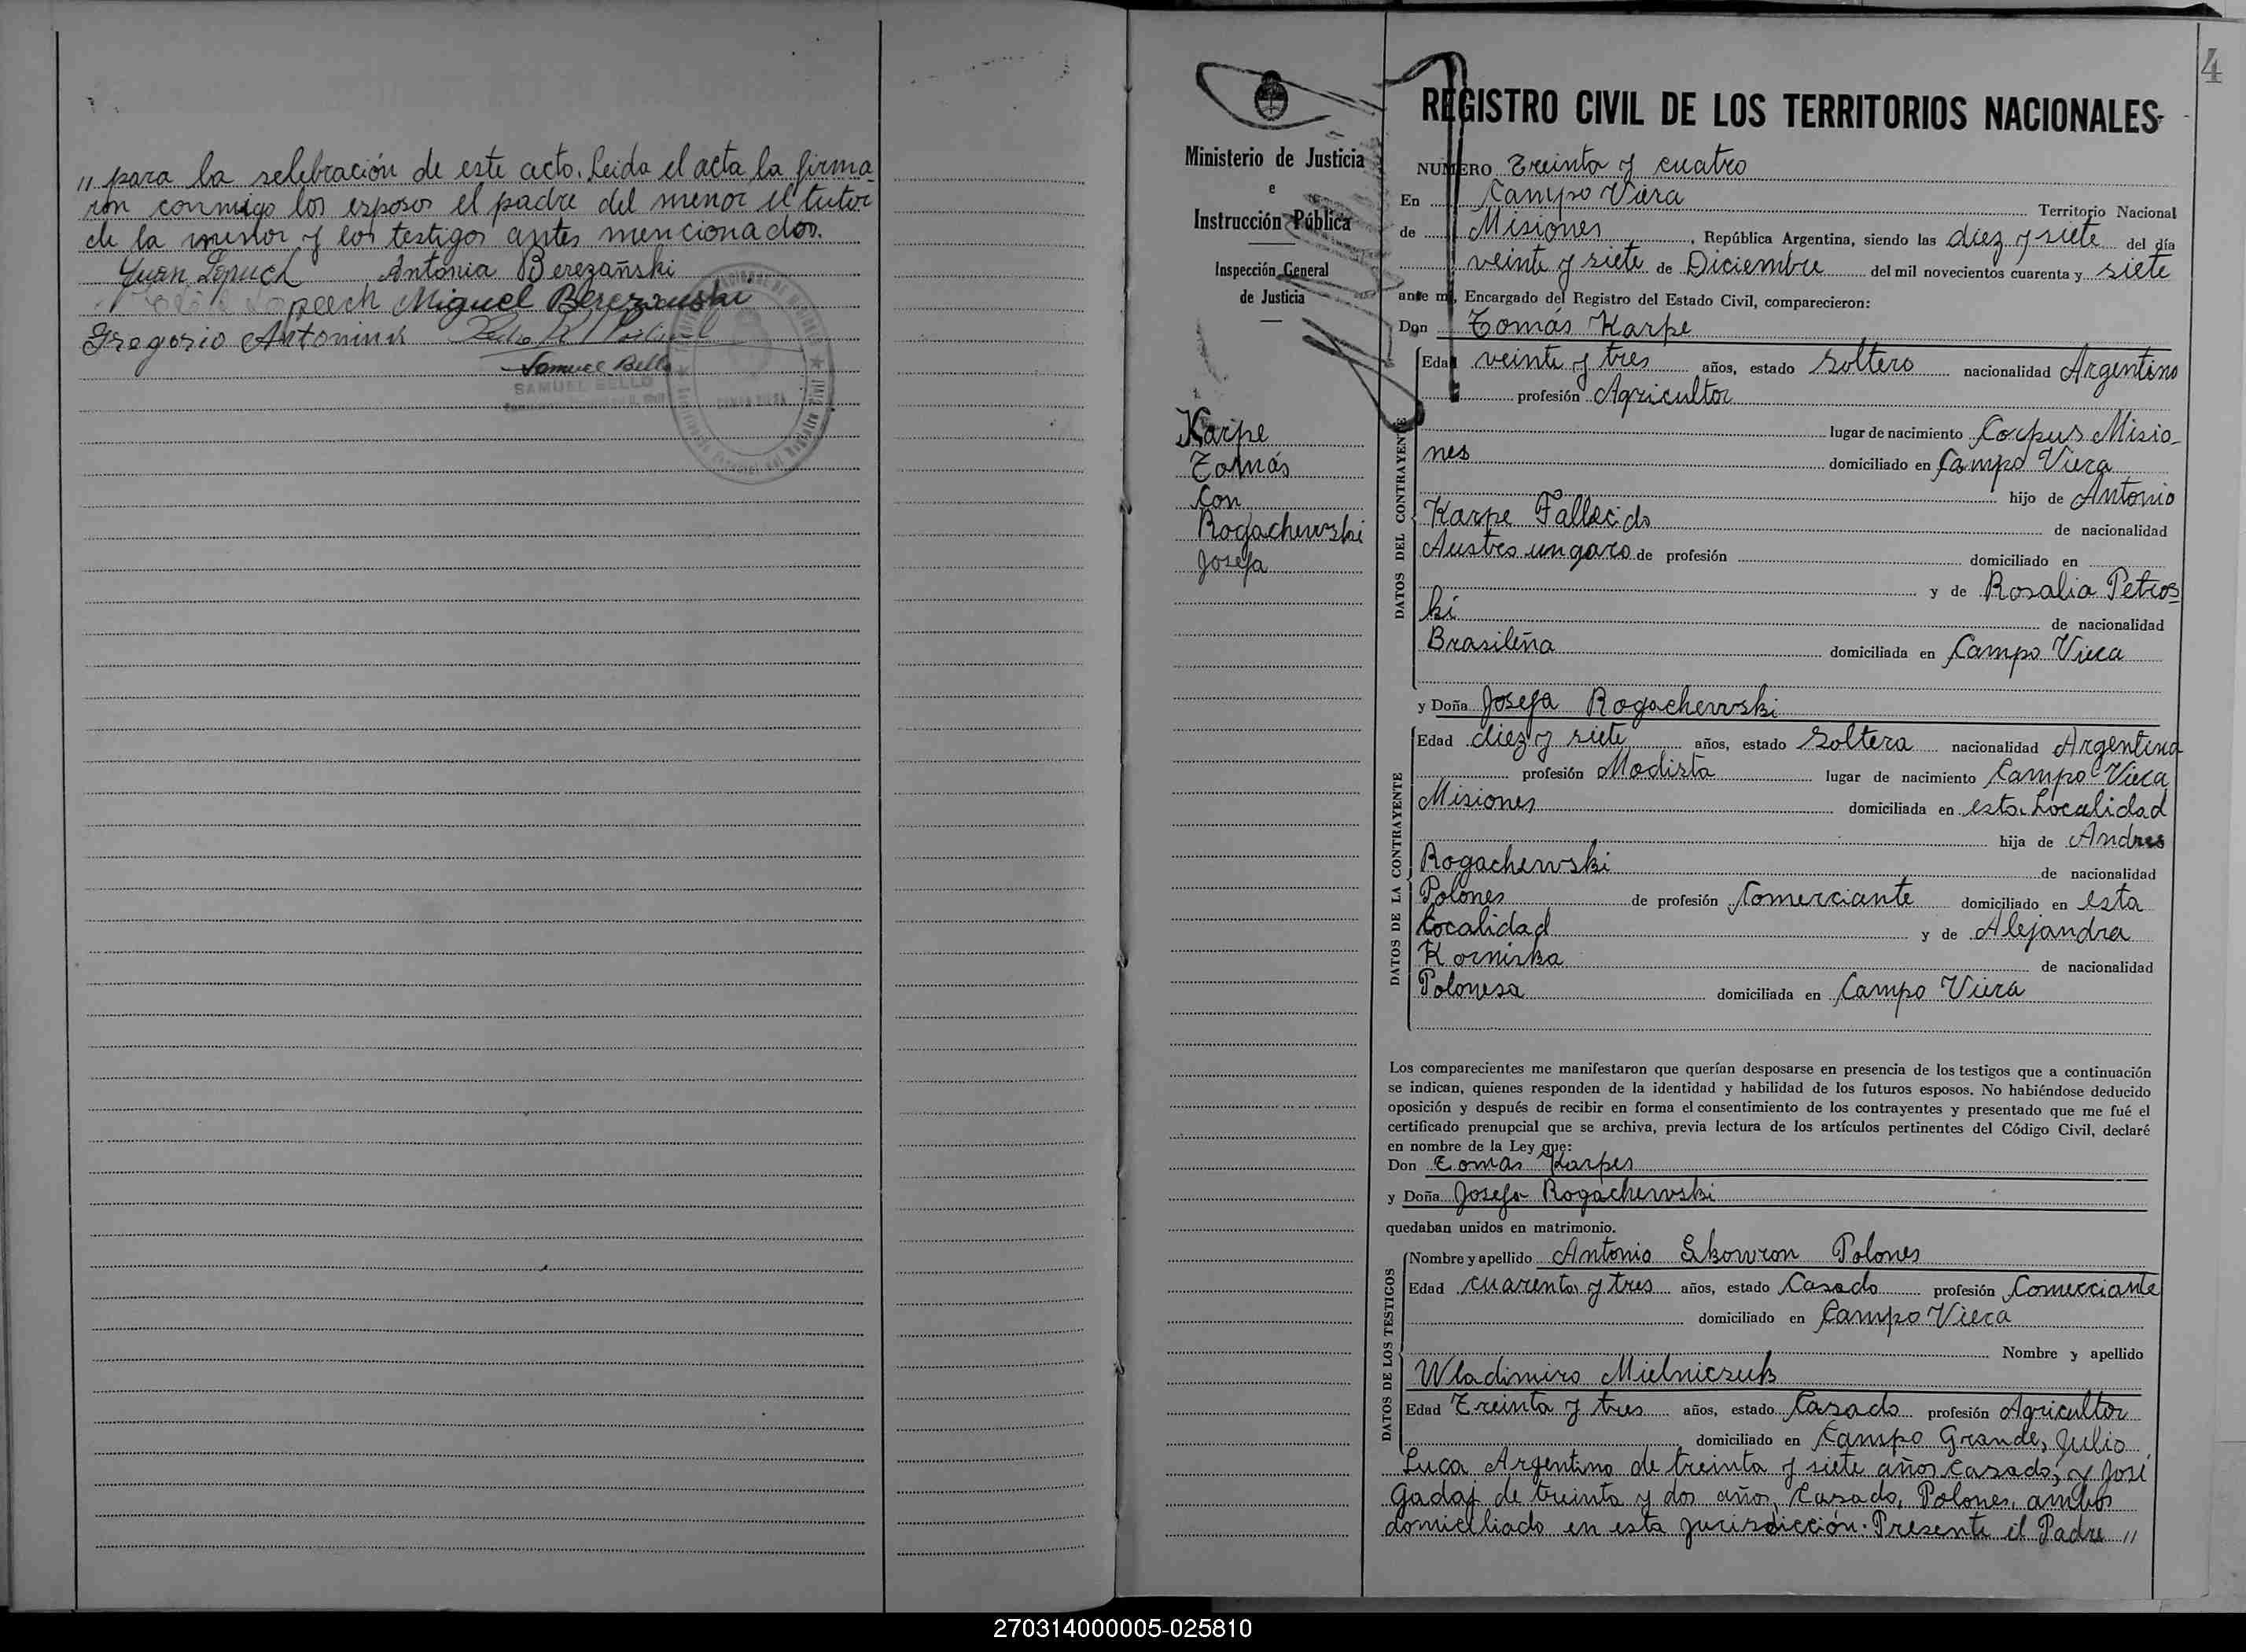 " para la selebración de este acto. Leida el acta la firma-
ron conmigo los esposos el padre del menor el tutor
de la menor y los testigos antes mencionados.
Juan Lopuch Antonia Berezañski
Miguel Berezanski
Gregorio Antoniuk
Samuel Bello
SAMUEL BELLO
4
Ministerio de Justicia
e
Instrucción Pública
Inspección General
de Justicia
Karpe
Tomás
Con
Rogachewski
Josefa
REGISTRO CIVIL DE LOS TERRITORIOS NACIONALES
NUMERO Treinta y cuatro
En Campo Viera Territorio Nacional
de Misiones, República Argentina, siendo las diez y siete del día
veinte y siete de Diciembre del mil novecientos cuarenta y siete
ante mí, Encargado del Registro del Estado Civil, comparecieron:
Don Tomás Karpe
DATOS DEL CONTRAYENTE
Edad veinte y tres años, estado Soltero nacionalidad Argentino
profesión Agricultor
lugar de nacimiento Corpus Misio-
nes domiciliado en Campo Viera
hijo de Antonio
Karpe Fallecido de nacionalidad
Austro ungaro de profesión domiciliado en
y de Rosalia Petros
ki de nacionalidad
Brasileña domiciliada en Campo Viera
y Doña Josefa Rogachewski
DATOS DE LA CONTRAYENTE
Edad diez y siete años, estado Soltera nacionalidad Argentina
profesión Modista lugar de nacimiento Campo Viera
Misiones domiciliada en esta Localidad
hija de Andres
Rogachewski de nacionalidad
Polones de profesión Comerciante domiciliado en esta
Localidad y de Alejandra
Korniska de nacionalidad
Polonesa domiciliada en Campo Viera
Los comparecientes me manifestaron que querían desposarse en presencia de los testigos que a continuación
se indican, quienes responden de la identidad y habilidad de los futuros esposos. No habiéndose deducido
oposición y después de recibir en forma el consentimiento de los contrayentes y presentado que me fué el
certificado prenupcial que se archiva, previa lectura de los artículos pertinentes del Código Civil, declaré
en nombre de la Ley que:
Don Tomas Karpes
y Doña Josefa Rogachewski
quedaban unidos en matrimonio.
DATOS DE LOS TESTIGOS
Nombre y apellido Antonio Skowron Polones
Edad cuarenta y tres años, estado Casado profesión Comerciante
domiciliado en Campo Viera
Nombre y apellido
Wladimiro Mielniczuk
Edad Treinta y tres años, estado Casado profesión Agricultor
domiciliado en Campo Grande, Julio
Luca Argentino de treinta y siete años Casado, y José
Gadaj de treinta y dos años, Casado, Polones, ambos
domiciliado en esta jurisdicción. Presente el Padre "
270314000005-025810